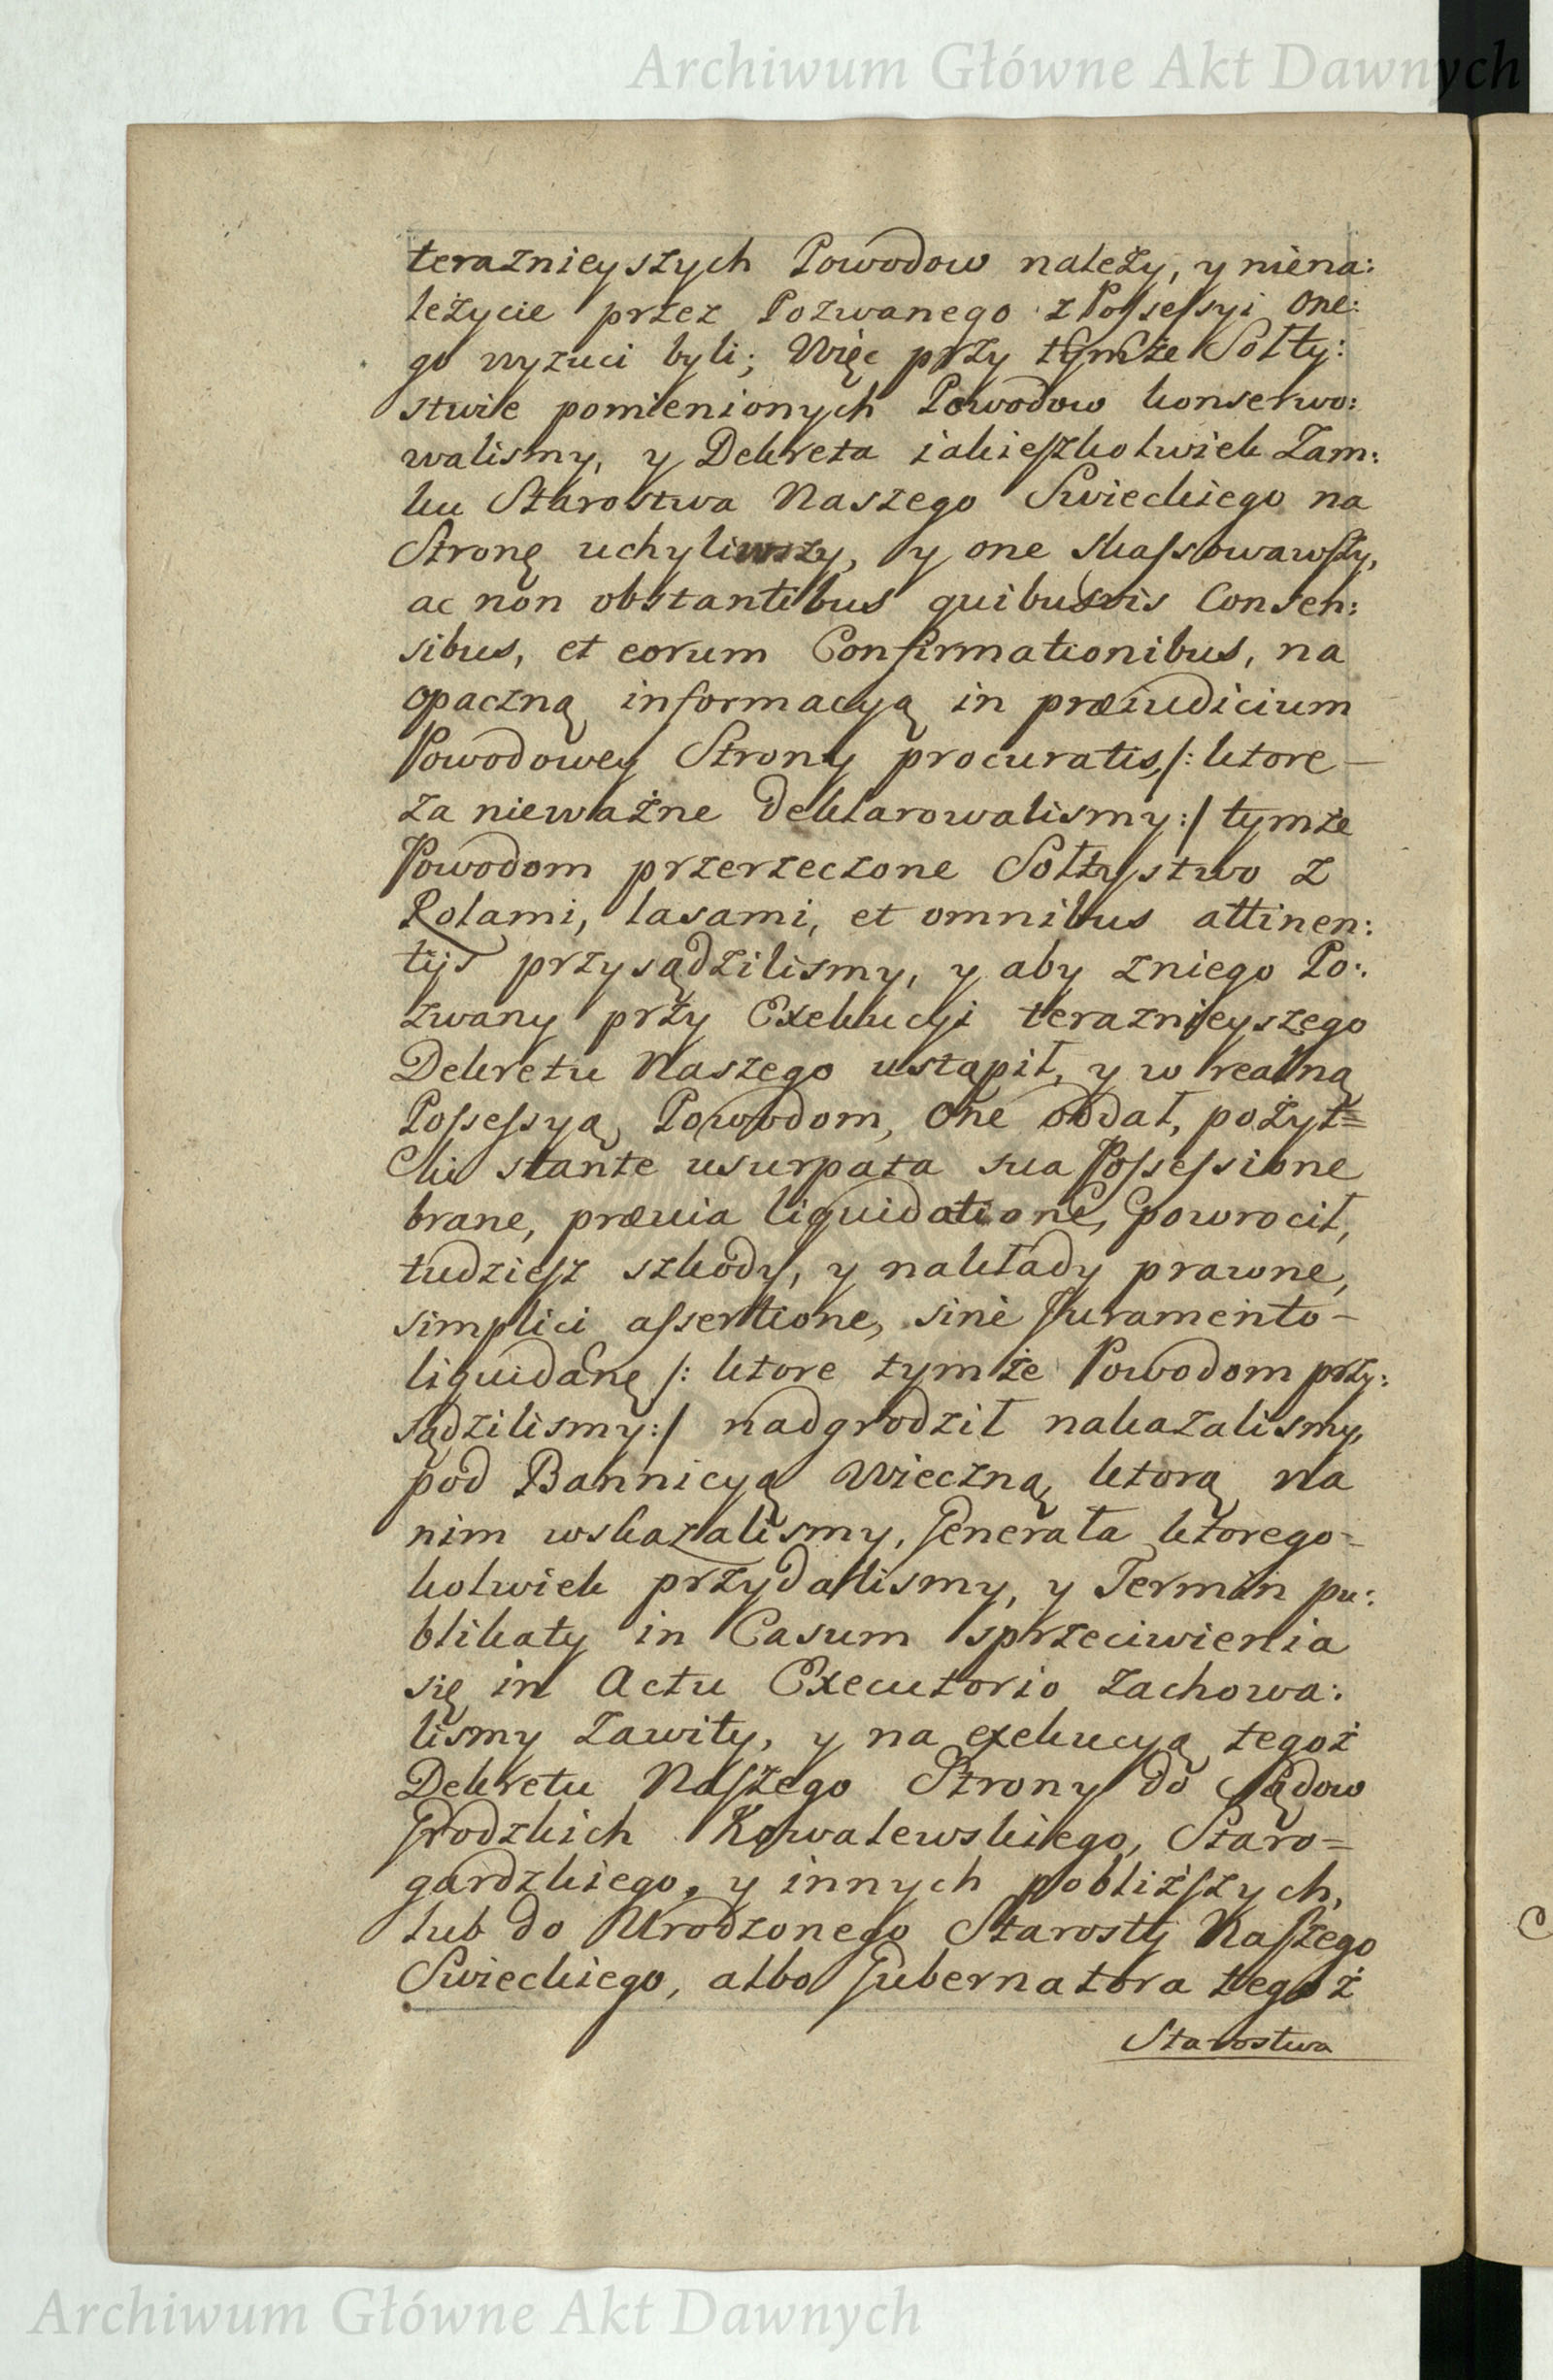 Archiwum Główne Akt Dawnych
teraznieyszych Powodow należy, y niena:
leżycie przez Pozwanego z Possessyi one:
go wyzuci byli; Więc przy tymże Sołty:
stwie pomienionych Powodow konserwo:
walismy, y Dekreta iakieszkolwiek Zam:
ku Starostwa Naszego Swieckiego na
Stronę uchyliwszy, y one skassowawszy,
ac non obstantibus quibusvis Consen:
sibus, et eorum Confirmationibus, na
opaczną informacyą in præiudicium
Powodowey Strony procuratis, /: ktore —
za nieważne deklarowalismy :/ tymże
Powodom przerzeczone Sołtystwo z
Rolami, lasami, et omnibus attinen:
tijs przysądzilismy, y aby zniego Po:
zwany przy Exekucyi teraznieyszego
Dekretu Naszego ustąpił, y w realną
Possessyą Powodom, one oddał, pożyt=
ki stante usurpata sua Possessione
brane, prævia liquidatione, powrocił,
tudziesz szkody, y nakłady prawne,
simplici assertione, sine Juramento —
liquidanę /: ktore tymże Powodom przy:
sądzilismy :/ nadgrodził nakazalismy,
pod Bannicyą Wieczną, ktorą na
nim wskazalismy, Generała ktorego=
kolwiek przydalismy, y Termin pu:
blikaty in Casum sprzeciwienia
się in Actu Executorio zachowa:
lismy zawity, y na exekucyą tegoż
Dekretu Naszego Strony do Sądow
Grodzkich Kowalewskiego, Staro=
gardzkiego, y innych pobliższych,
lub do Urodzonego Starosty Naszego
Swieckiego, albo Gubernatora tegoż
Starostwa
Archiwum Główne Akt Dawnych